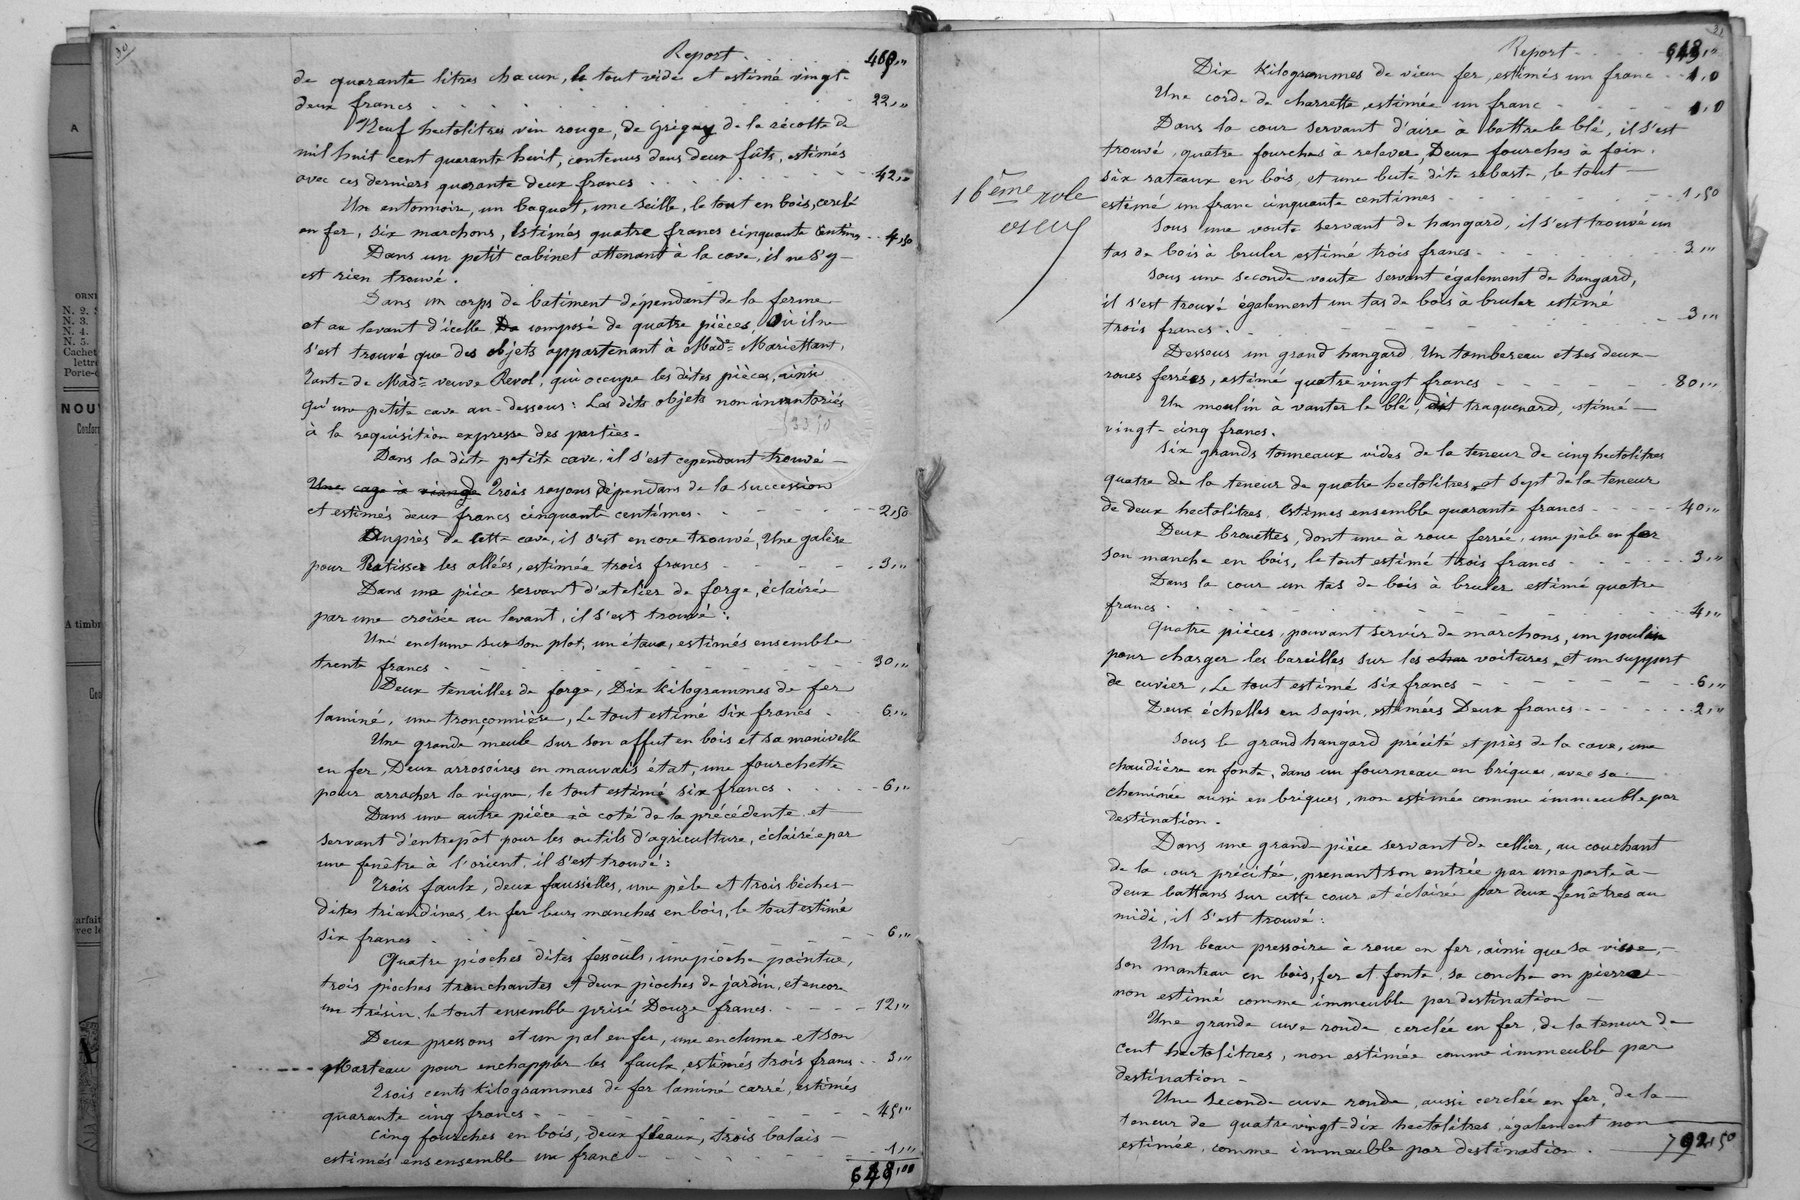 30
Report . . . . . 469,"
de quarante litres chacun, le tout vide et estimé vingt-
deux francs . . . . . . . . . 22,"
Neuf hectolitres vin rouge, de Grigny de la récolte de
mil huit cent quarante huit, contenus dans deux fûts, estimés
avec ces derniers quarante deux francs . . . . . . 42,"
Un entonnoir, un baquet, une seille, le tout en bois, cerclé
en fer, six marchons, estimés quatre francs cinquante centimes . . 4,50
Dans un petit cabinet attenant à la cave, il ne s'y
est rien trouvé.
Dans un corps de batiment dépendant de la ferme
et au levant d'icelle composé de quatre pièces, où il ne
s'est trouvé que des objets appartenant à Made Mariettant,
Tante de Made veuve Revol, qui occupe les dites pièces, ainsi
qu'une petite cave au-dessous: Les dits objets non inventoriés
à la requisition expresse des parties.
Dans la dite petite cave, il s'est cependant trouvé
Une cage à viande Trois rayons dépendans de la succession
et estimés deux francs cinquante centimes . . . . . 2,50
Auprès de cette cave, il s'est encore trouvé, Une galère
pour Ratisser les allées, estimée trois francs . . . . . 3,"
Dans une pièce servant d'atelier de forge, éclairée
par une croisée au levant, il s'est trouvé:
Une enclume sur son plot, un étaux, estimés ensemble
trente francs . . . . . . . . . 30,"
Deux tenailles de forge, Dix kilogrammes de fer
laminé, une tronçonnière, Le tout estimé six francs . . 6,"
Une grande meule sur son affut en bois et sa manivelle
en fer, Deux arrosoires en mauvais état, une fourchette
pour arracher la vigne, le tout estimé six francs . . . . 6,"
Dans une autre pièce à coté de la précédente et
servant d'entrepôt pour les outils d'agriculture, éclairée par
une fenêtre à l'orient, il s'est trouvé:
Trois faulx, deux faussilles, une pèle et trois bêches
dites triandines, en fer leurs manches en bois, le tout estimé
six francs . . . . . . . . . 6,"
Quatre pioches dites fessouls, une pioche pointue,
trois pioches tranchantes et deux pioches de jardin, et encore
un trésin, le tout ensemble prisé Douze francs. . . . . 12,"
Deux pressons et un pal en fer, une enclume et son
Marteau pour enchappler les faulx, estimés trois francs . . 3,"
Trois cents kilogrammes de fer laminé carré, estimés
quarante cinq francs . . . . . . . . 45,"
Cinq fourches en bois, deux fleaux, trois balais
estimés ensensemble un franc . . . . . . 1,"
648,00
Report . . . . 648,"
Dix Kilogrammes de vieux fer, estimés un franc . . 1,0
Une corde de charrette, estimée un franc . . . . 1,0
Dans la cour servant d'aire à battre le blé, il s'est
trouvé, quatre fourches à relever, Deux fourches à foin,
six rateaux en bois, et une bute dite rabasta, le tout
estimé un franc cinquante centimes . . . . . . 1,50
16ème role
Sous une voute servant de hangard, il s'est trouvé un
tas de bois à bruler estimé trois francs . . . . . . 3,"
Sous une seconde voute servant également de hangard,
il s'est trouvé également un tas de bois à bruler estimé
trois francs . . . . . . . . . 3,"
Dessous un grand hangard Un tombereau et ses deux
roues ferrées, estimé quatre vingt francs . . . . . 80,"
Un moulin à vanter le blé, dit traquenard, estimé
vingt-cinq francs.
Six grands tonneaux vides de la teneur de cinq hectolitres
quatre de la teneur de quatre hectolitres, et sept de la teneur
de deux hectolitres, estimés ensemble quarante francs . . . . 40,"
Deux brouettes, dont une à roue ferrée, une pèle en fer
son manche en bois, le tout estimé trois francs . . . . . 3,"
Dans la cour un tas de bois à bruler estimé quatre
francs . . . . . . . . . 4,"
Quatre pièces, pouvant servir de marchons, un poulin
pour charger les bareilles sur les char voitures, et un support
de cuvier, Le tout estimé six francs . . . . . . 6,"
Deux échelles en sapin, estimées Deux francs . . . . . 2,"
Sous le grand hangard précité et près de la cave, une
chaudière en fonte, dans un fourneau en briques, avec sa
cheminée aussi en briques, non estimée comme immeuble par
destination.
Dans une grande pièce servant de cellier, au couchant
de la cour précitée, prenant son entrée par une porte à
deux battans sur cette cour et éclairée par deux fenêtres au
midi, il s'est trouvé:
Un beau pressoire à roue en fer, ainsi que sa visse,
son manteau en bois, fer et fonte, sa conche en pierre
non estimé comme immeuble par destination
Une grande cuve ronde, cerclée en fer, de la teneur de
cent hectolitres, non estimée comme immeuble par
destination
Une seconde cuve ronde, aussi cerclée en fer, de la
teneur de quatre vingt-dix hectolitres, également non
estimée, comme immeuble par destination.
792,50
A
ORNE
N. 2.
N. 3.
N. 4.
N. 5.
Cachet
lettre
Porte-
NOUV
Conform
A timbr